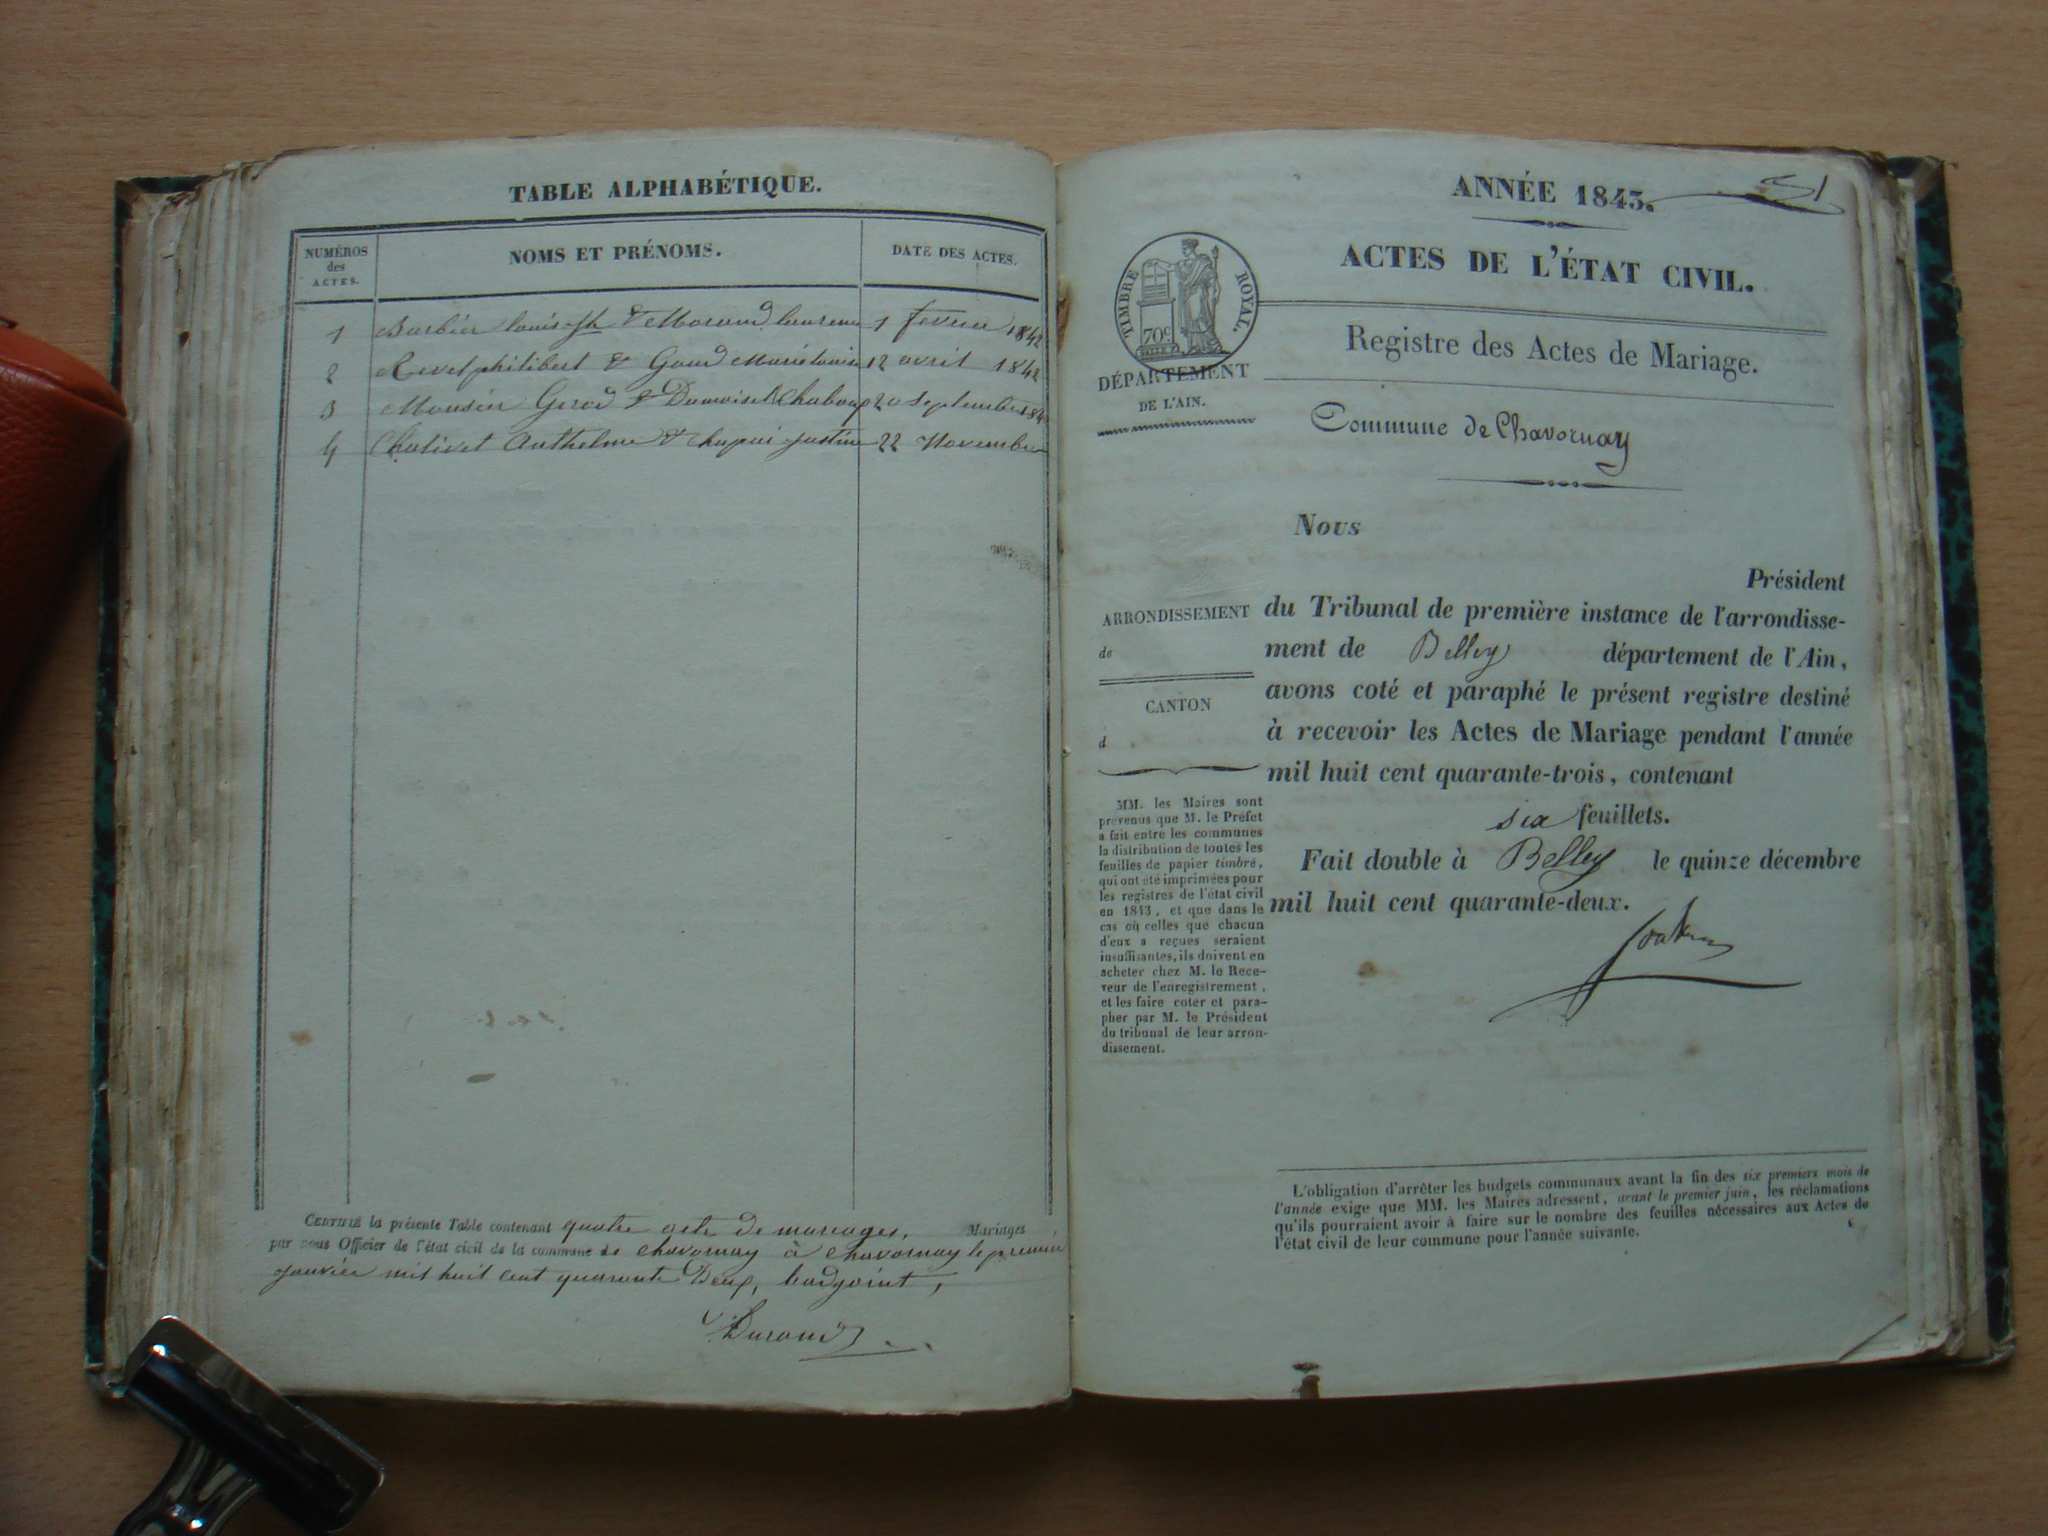 TABLE ALPHABÉTIQUE.
NUMÉROS
des
ACTES.
NOMS ET PRÉNOMS.
DATE DES ACTES.
1 Barbier louis jh & Morand laurence 1 fevrier 1842
2 Revel philibert & Goud Marie louise 12 avril 1842
3 Monsieur Gerod & Damoiselle 20 Septembre 184
4 Anthelme & justine 22 Novembre
CERTIFIÉ la présente Table contenant quatre acte de mariages, Mariages,
par nous Officier de l'état civil de la commune de Chavornay à Chavornay le premier
janvier mil huit cent quarante Deux, l'adjoint,
Durand
ANNÉE 1843.
51
ACTES DE L'ÉTAT CIVIL.
TIMBRE ROYAL.
70c
Registre des Actes de Mariage.
DÉPARTEMENT
DE L'AIN.
Commune de Chavornay
Nous
Président
ARRONDISSEMENT
de
CANTON
d
du Tribunal de première instance de l'arrondisse-
ment de Belley département de l'Ain,
avons coté et paraphé le présent registre destiné
à recevoir les Actes de Mariage pendant l'année
mil huit cent quarante-trois, contenant
six feuillets.
Fait double à Belley le quinze décembre
mil huit cent quarante-deux.
MM. les Maires sont
prévenus que M. le Préfet
a fait entre les communes
la distribution de toutes les
feuilles de papier timbré,
qui ont été imprimées pour
les registres de l'état civil
en 1843, et que dans le
cas où celles que chacun
d'eux a reçues seraient
insuffisantes, ils doivent en
acheter chez M. le Rece-
veur de l'enregistrement,
et les faire coter et para-
pher par M. le Président
du tribunal de leur arron-
dissement.
L'obligation d'arrêter les budgets communaux avant la fin des six premiers mois de
l'année exige que MM. les Maires adressent, avant le premier juin, les réclamations
qu'ils pourraient avoir à faire sur le nombre des feuilles nécessaires aux Actes de
l'état civil de leur commune pour l'année suivante.